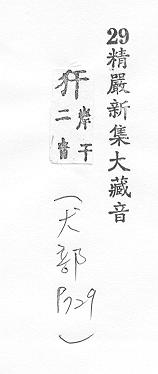 29精嚴新集大藏音
犴 岸干二音
(犬部
P29)